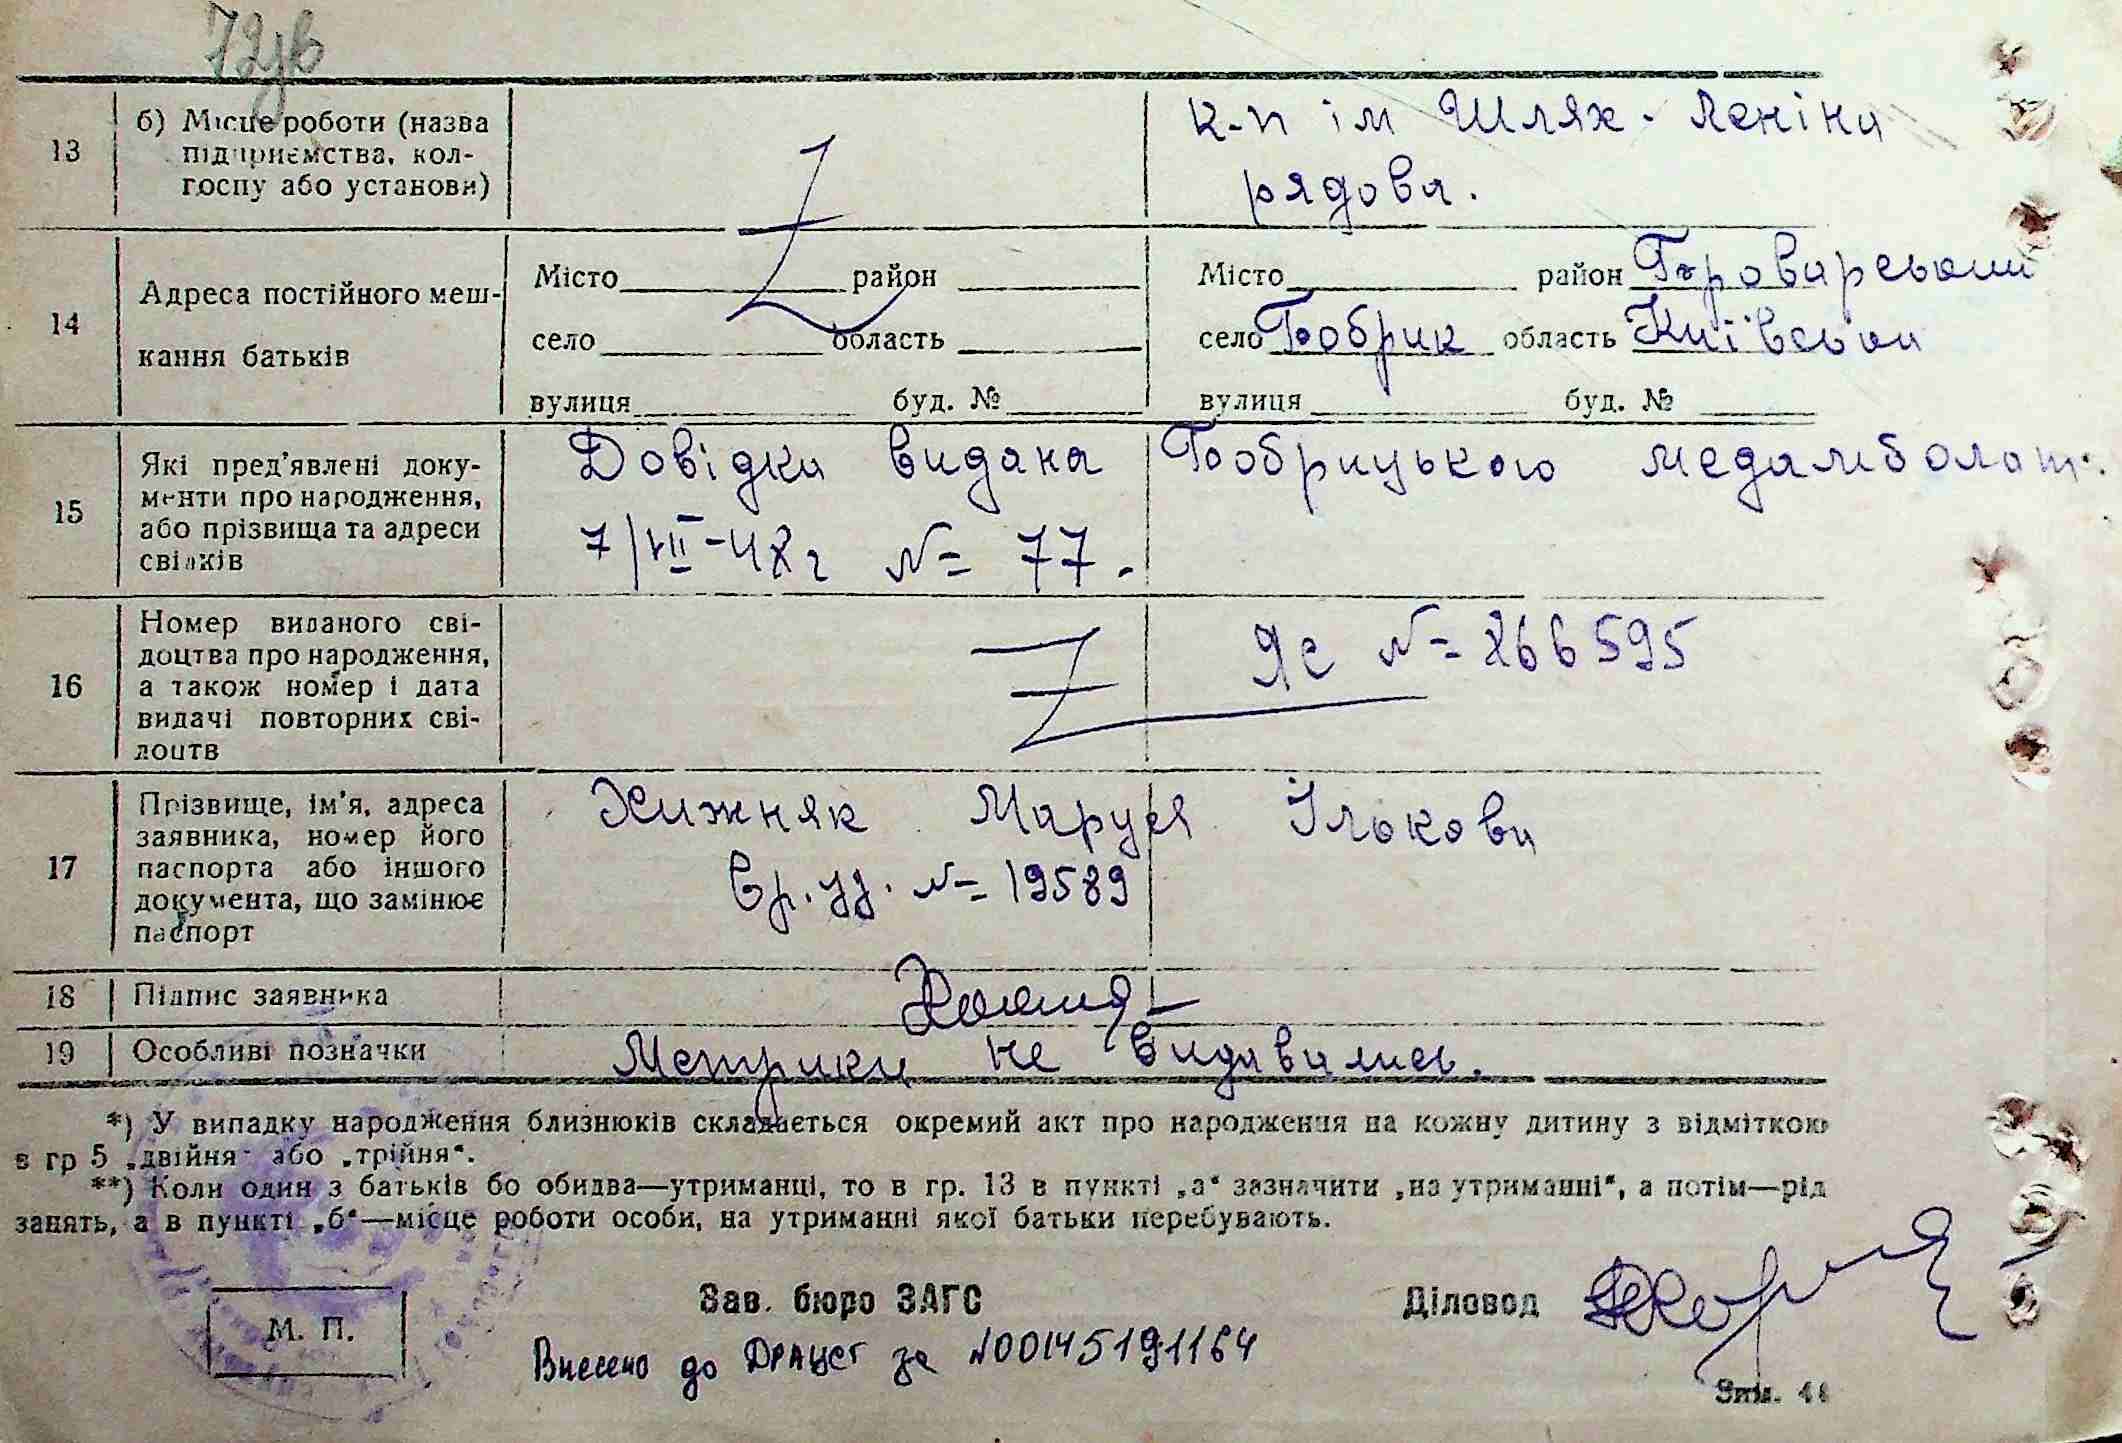 72зв
13
б) Місце роботи (назва
підприємства, кол-
госпу або установи)
к-п ім Шлях. Леніна
рядова.
14
Адреса постійного меш-
кання батьків
Місто район
село область
вулиця буд. №
Місто район Броварський
село Бобрик область Київська
вулиця буд. №
15
Які пред'явлені доку-
менти про народження,
або прізвища та адреси
свідків
Довідка видана Бобрицькою медамболат.
7/VII-48г № 77.
16
Номер виданого сві-
доцтва про народження,
а також номер і дата
видачі повторних сві-
доцтв
ЯС № 266595
17
Прізвище, ім'я, адреса
заявника, номер його
паспорта або іншого
документа, що замінює
паспорт
Хижняк Маруся Ількова
Вр. уд. № 19589
18
Підпис заявника
19
Особливі позначки
Метрики не видавались.
*) У випадку народження близнюків складається окремий акт про народження на кожну дитину з відміткою
в гр 5 „двійня" або „трійня".
**) Коли один з батьків бо обидва—утриманці, то в гр. 13 в пункті „а" зазначити „на утриманні", а потім—рід
занять, а в пункті „б"—місце роботи особи, на утриманні якої батьки перебувають.
М. П.
Зав. бюро ЗАГС
Діловод
Внесено до ДРАЦСГ за №00145191164
Зам.